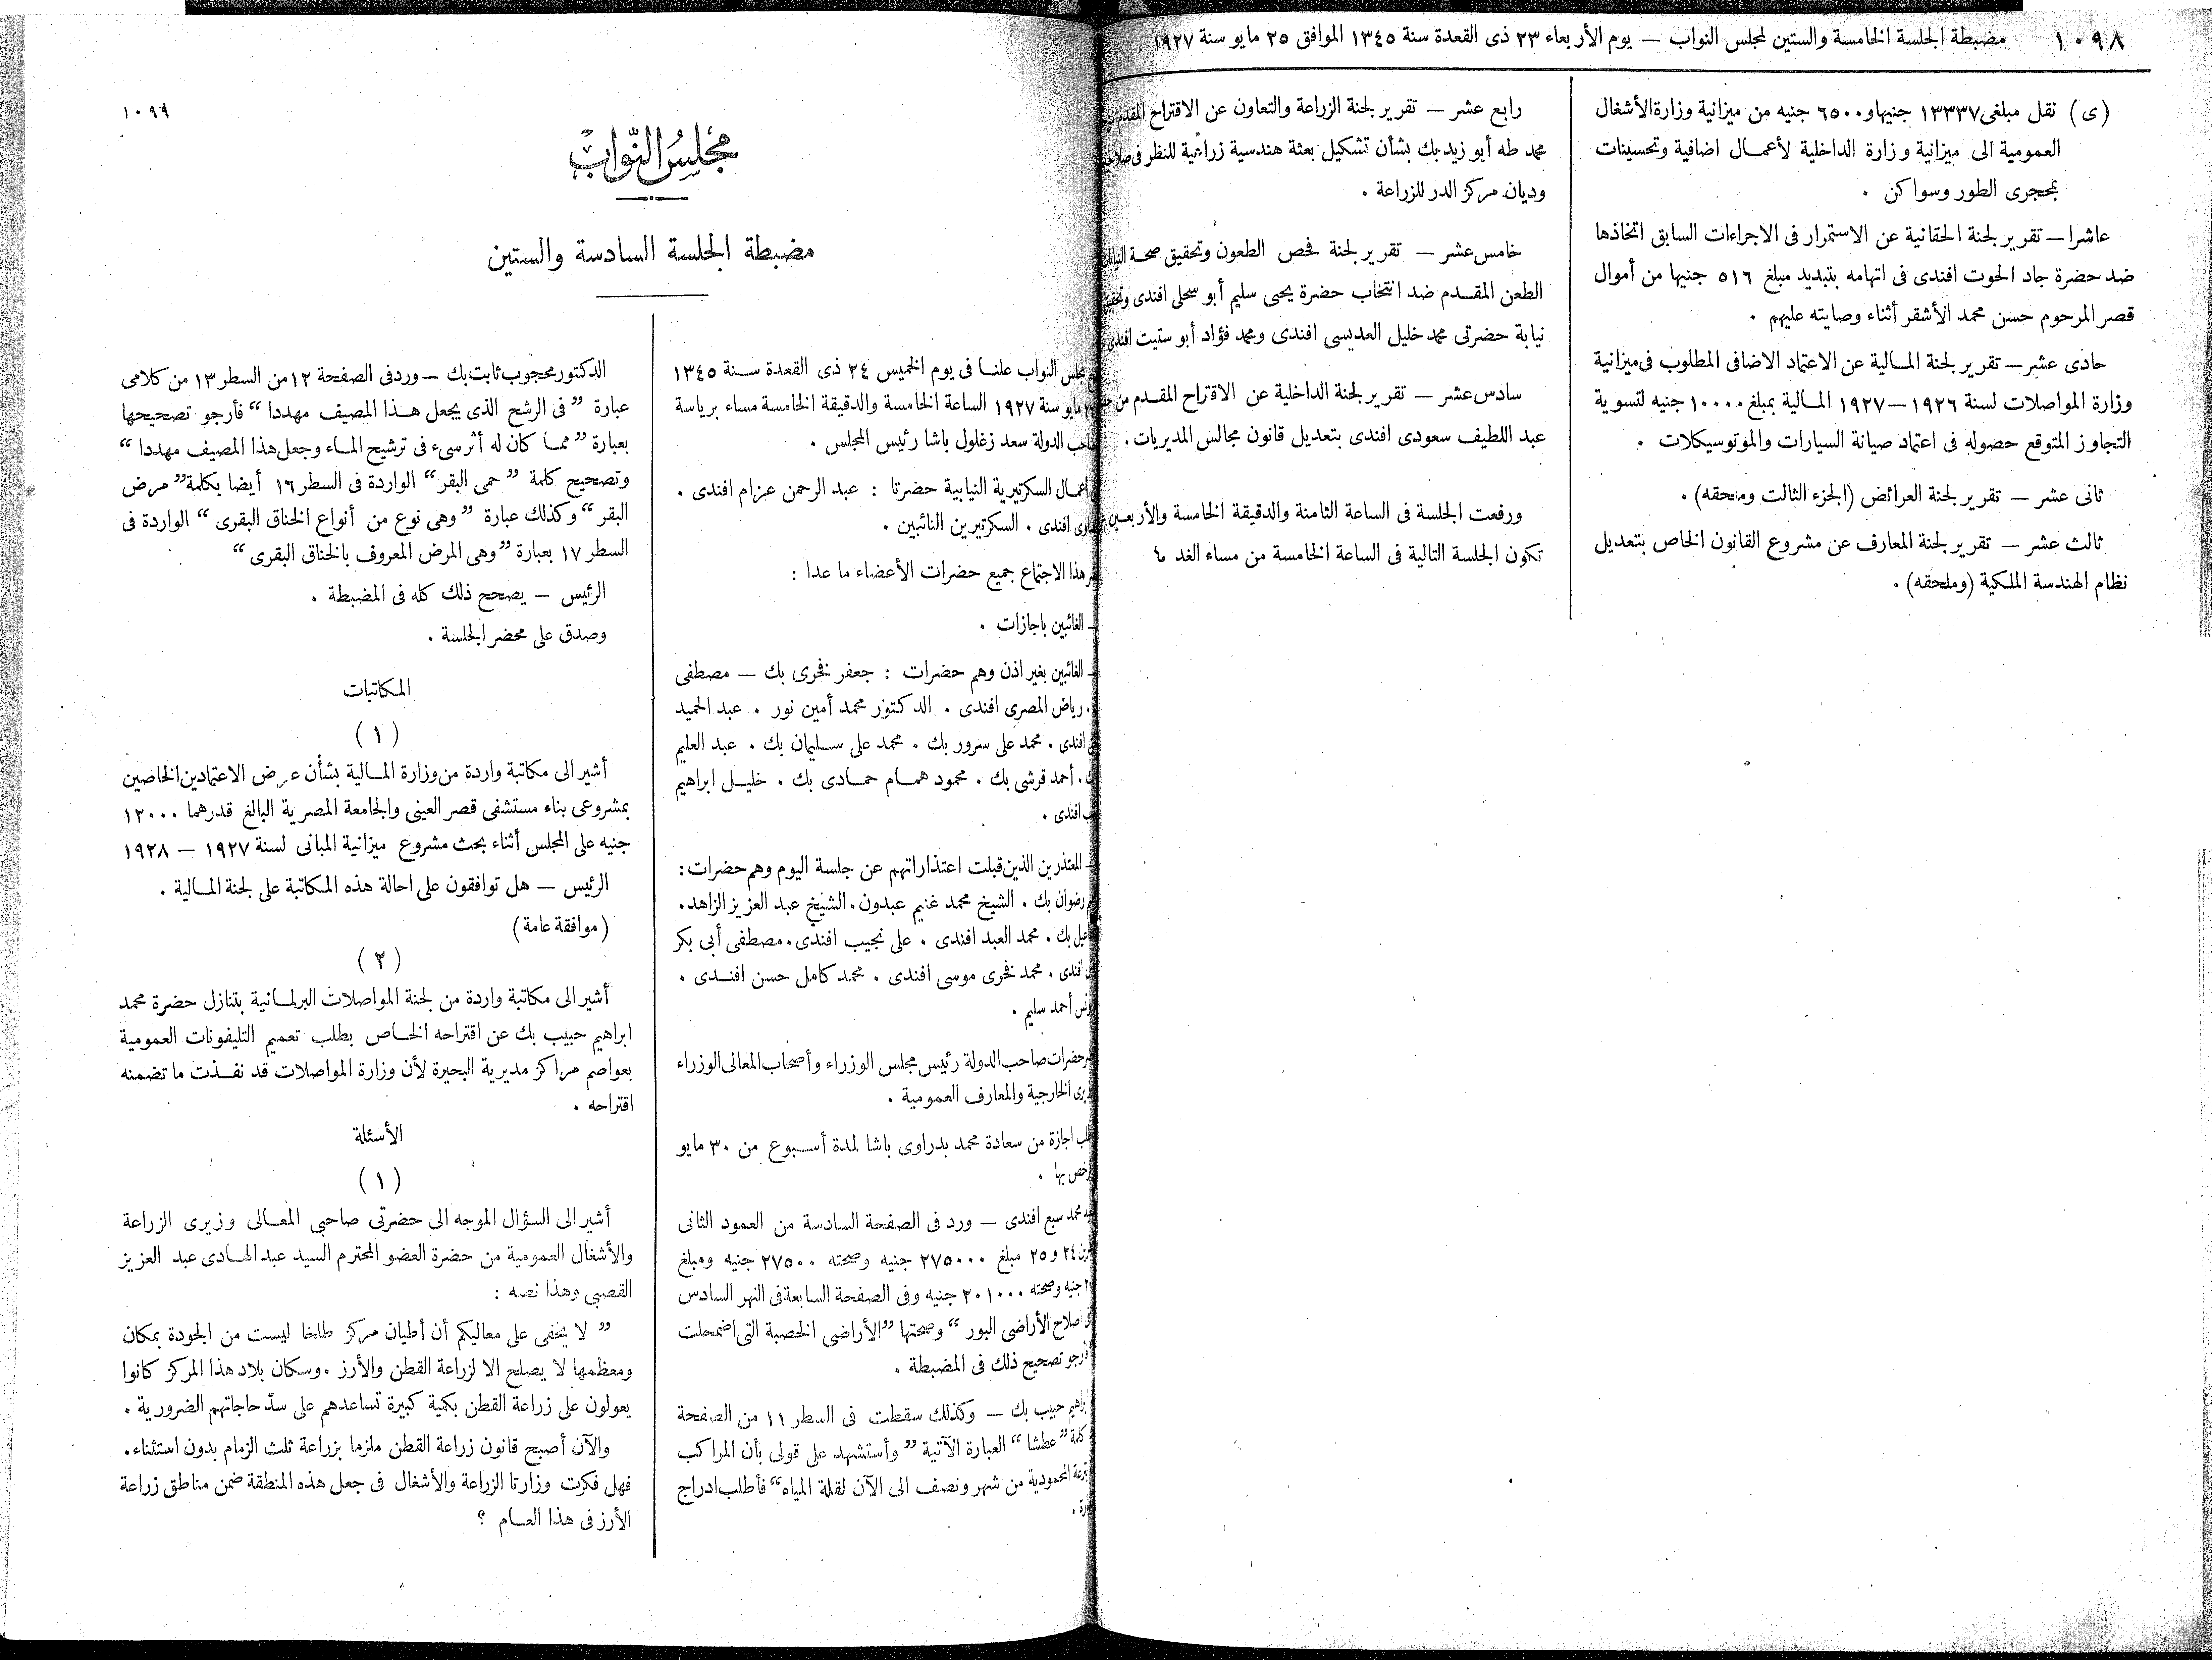 ١٠٩٨ مضبطة الجلسة الخامسة والستين لمجلس النواب — يوم الأربعاء ٢٣ ذى القعدة سنة ١٣٤٥ الموافق ٢٥ مايو سنة ١٩٢٧
(ى) نقل مبلغى ١٣٣٣٧ جنيها و ٦٥٠٠ جنيه من ميزانية وزارة الأشغال
العمومية الى ميزانية وزارة الداخلية لأعمال اضافية وتحسينات
بمحجرى الطور وسواكن .
عاشرا — تقرير لجنة الحقانية عن الاستمرار فى الاجراءات السابق اتخاذها
ضد حضرة جاد الحوت افندى فى اتهامه بتبديد مبلغ ٥١٦ جنيها من أموال
قصر المرحوم حسن محمد الأشقر أثناء وصايته عليهم .
حادى عشر — تقرير لجنة المالية عن الاعتماد الاضافى المطلوب فى ميزانية
وزارة المواصلات لسنة ١٩٢٦ — ١٩٢٧ المالية بمبلغ ١٠٠٠٠ جنيه لتسوية
التجاوز المتوقع حصوله فى اعتماد صيانة السيارات والموتوسيكلات .
ثانى عشر — تقرير لجنة العرائض (الجزء الثالث وملحقه) .
ثالث عشر — تقرير لجنة المعارف عن مشروع القانون الخاص بتعديل
نظام الهندسة الملكية (وملحقه) .
رابع عشر — تقرير لجنة الزراعة والتعاون عن الاقتراح المقدم من
محمد طه أبو زيد بك بشأن تشكيل بعثة هندسية زراعية للنظر فى صلاحية
وديان مركز الدر للزراعة .
خامس عشر — تقرير لجنة فحص الطعون وتحقيق صحة النيابات
الطعن المقدم ضد انتخاب حضرة يحيى سليم أبو سحلى افندى وتحقيق
نيابة حضرتى محمد خليل العديسى افندى ومحمد فؤاد أبو ستيت افندى .
سادس عشر — تقرير لجنة الداخلية عن الاقتراح المقدم من
عبد اللطيف سعودى افندى بتعديل قانون مجالس المديريات .
ورفعت الجلسة فى الساعة الثامنة والدقيقة الخامسة والأربعين
تكون الجلسة التالية فى الساعة الخامسة من مساء الغد م
١٠٩٩
مجلس النواب
مضبطة الجلسة السادسة والستين
مجلس النواب علنا فى يوم الخميس ٢٤ ذى القعدة سنة ١٣٤٥
٢٦ مايو سنة ١٩٢٧ الساعة الخامسة والدقيقة الخامسة مساء برياسة
صاحب الدولة سعد زغلول باشا رئيس المجلس .
أعمال السكرتيرية النيابية حضرتا : عبد الرحمن عزام افندى .
افندى . السكرتيرين النائبين .
هذا الاجتماع جميع حضرات الأعضاء ما عدا :
— الغائبين باجازات .
— الغائبين بغير اذن وهم حضرات : جعفر فخرى بك — مصطفى
. رياض المصرى افندى . الدكتور محمد أمين نور . عبد الحميد
افندى . محمد على سرور بك . محمد على سليمان بك . عبد العليم
بك . أحمد قرشى بك . محمود همام حمادى بك . خليل ابراهيم
افندى .
— المعتذرين الذين قبلت اعتذاراتهم عن جلسة اليوم وهم حضرات :
رضوان بك . الشيخ محمد غنيم عبدون . الشيخ عبد العزيز الزاهد .
بك . محمد العبد افندى . على نجيب افندى . مصطفى أبى بكر
افندى . محمد فخرى موسى افندى . محمد كامل حسن افندى .
أحمد سليم .
حضرات صاحب الدولة رئيس مجلس الوزراء وأصحاب المعالى الوزراء
الخارجية والمعارف العمومية .
اجازة من سعادة محمد بدراوى باشا لمدة أسبوع من ٣٠ مايو
بها .
محمد سبع افندى — ورد فى الصفحة السادسة من العمود الثانى
٢٤ و ٢٥ مبلغ ٢٧٥٠٠٠ جنيه وصحته ٢٧٥٠٠ جنيه ومبلغ
جنيه وصحته ٢٠١٠٠٠ جنيه وفى الصفحة السابعة فى النهر السادس
اصلاح الأراضى البور “ وصحتها ” الأراضى الخصبة التى اضمحلت
فأرجو تصحيح ذلك فى المضبطة .
ابراهيم حبيب بك — وكذلك سقطت فى السطر ١١ من الصفحة
كلمة ” عطشا “ العبارة الآتية ” وأستشهد على قولى بأن المراكب
المحمودية من شهر ونصف الى الآن لقلة المياه “ فأطلب ادراج
الدكتور محجوب ثابت بك — ورد فى الصفحة ١٢ من السطر ١٣ من كلامى
عبارة ” فى الرشح الذى يجعل هذا المصيف مهددا “ فأرجو تصحيحها
بعبارة ” مما كان له أثر سىء فى ترشيح الماء وجعل هذا المصيف مهددا “
وتصحيح كلمة ” حمى البقر “ الواردة فى السطر ١٦ أيضا بكلمة ” مرض
البقر “ وكذلك عبارة ” وهى نوع من أنواع الخناق البقرى “ الواردة فى
السطر ١٧ بعبارة ” وهى المرض المعروف بالخناق البقرى “
الرئيس — يصحح ذلك كله فى المضبطة .
وصدق على محضر الجلسة .
المكاتبات
(١)
أشير الى مكاتبة واردة من وزارة المالية بشأن عرض الاعتمادين الخاصين
بمشروعى بناء مستشفى قصر العينى والجامعة المصرية البالغ قدرهما ١٢٠٠٠
جنيه على المجلس أثناء بحث مشروع ميزانية المبانى لسنة ١٩٢٧ — ١٩٢٨
الرئيس — هل توافقون على احالة هذه المكاتبة على لجنة المالية .
(موافقة عامة)
(٢)
أشير الى مكاتبة واردة من لجنة المواصلات البرلمانية بتنازل حضرة محمد
ابراهيم حبيب بك عن اقتراحه الخاص بطلب تعميم التليفونات العمومية
بعواصم مراكز مديرية البحيرة لأن وزارة المواصلات قد نفذت ما تضمنه
اقتراحه .
الأسئلة
(١)
أشير الى السؤال الموجه الى حضرتى صاحبى المعالى وزيرى الزراعة
والأشغال العمومية من حضرة العضو المحترم السيد عبد الهادى عبد العزيز
القصبى وهذا نصه :
” لا يخفى على معاليكم أن أطيان مركز طلخا ليست من الجودة بمكان
ومعظمها لا يصلح الا لزراعة القطن والأرز . وسكان بلاد هذا المركز كانوا
يعولون على زراعة القطن بكمية كبيرة تساعدهم على سدّ حاجاتهم الضرورية .
والآن أصبح قانون زراعة القطن ملزما بزراعة ثلث الزمام بدون استثناء .
فهل فكرت وزارتا الزراعة والأشغال فى جعل هذه المنطقة ضمن مناطق زراعة
الأرز فى هذا العام ؟